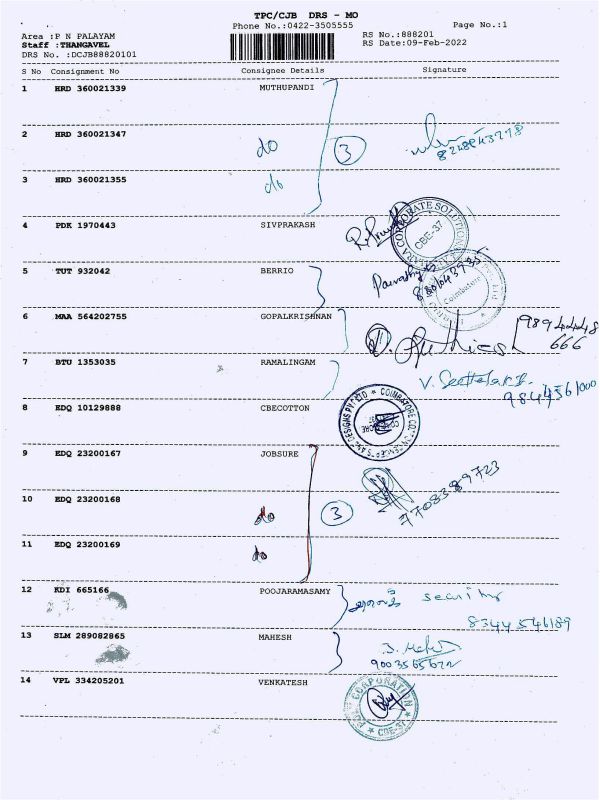 TPC/CJB DRS - MO
Phone No.:0422-3505555 Page No.:1
Area :P N PALAYAM RS No.:888201
Staff :THANGAVEL RS Date:09-Feb-2022
DRS No. :DCJB88820101
S No Consignment No Consignee Details Signature
1 HRD 360021339 MUTHUPANDI
2 HRD 360021347 do 3
8248943278
3 HRD 360021355 do
4 PDK 1970443 SIVPRAKASH
CORPORATE SOLUTION
CBE-37
5 TUT 932042 BERRIO
Coimbatore
6 MAA 564202755 GOPALKRISHNAN
9894448
666
7 BTU 1353035 RAMALINGAM
9844561000
8 EDQ 10129888 CBECOTTON
DESIGNS PVT LTD * COIMBATORE
9 EDQ 23200167 JOBSURE
7708389723
10 EDQ 23200168 do 3
11 EDQ 23200169 do
12 KDI 665166 POOJARAMASAMY security
8344546189
13 SLM 289082865 MAHESH
9003565672
14 VPL 334205201 VENKATESH
CORPORATION
CBE-37